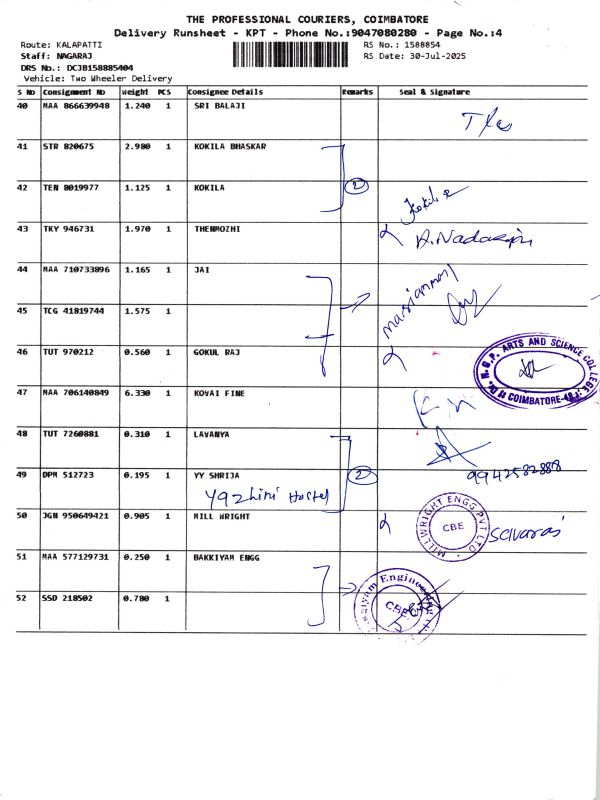 THE PROFESSIONAL COURIERS, COIMBATORE
Delivery Runsheet - KPT - Phone No.:9047080280 - Page No.:4
Route: KALAPATTI RS No.: 1588854
Staff: NAGARAJ RS Date: 30-Jul-2025
DRS No.: DCJB158885404
Vehicle: Two Wheeler Delivery
S No Consignment No Weight PCS Consignee Details Remarks Seal & signature
40 MAA 866639948 1.240 1 SRI BALAJI
41 STR 820675 2.980 1 KOKILA BHASKAR
2
42 TEN 8019977 1.125 1 KOKILA
43 TKY 946731 1.970 1 THENMOZHI
44 MAA 710733896 1.165 1 JAI
45 TCG 41819744 1.575 1
46 TUT 970212 0.560 1 GOKUL RAJ
ARTS AND SCIENCE COLLEGE
COIMBATORE-48
47 MAA 706140849 6.330 1 KOVAI FINE
48 TUT 7260881 0.310 1 LAVANYA
49 DPM 512723 0.195 1 YY SHRIJA 2
Yazhini Hostel
50 JGN 950649421 0.905 1 MILL WRIGHT
MILLWRIGHT ENGG PVT LTD
CBE
51 MAA 577129731 0.250 1 BAKKIYAM ENGG
52 SSD 218502 0.780 1
Engineering
CBE